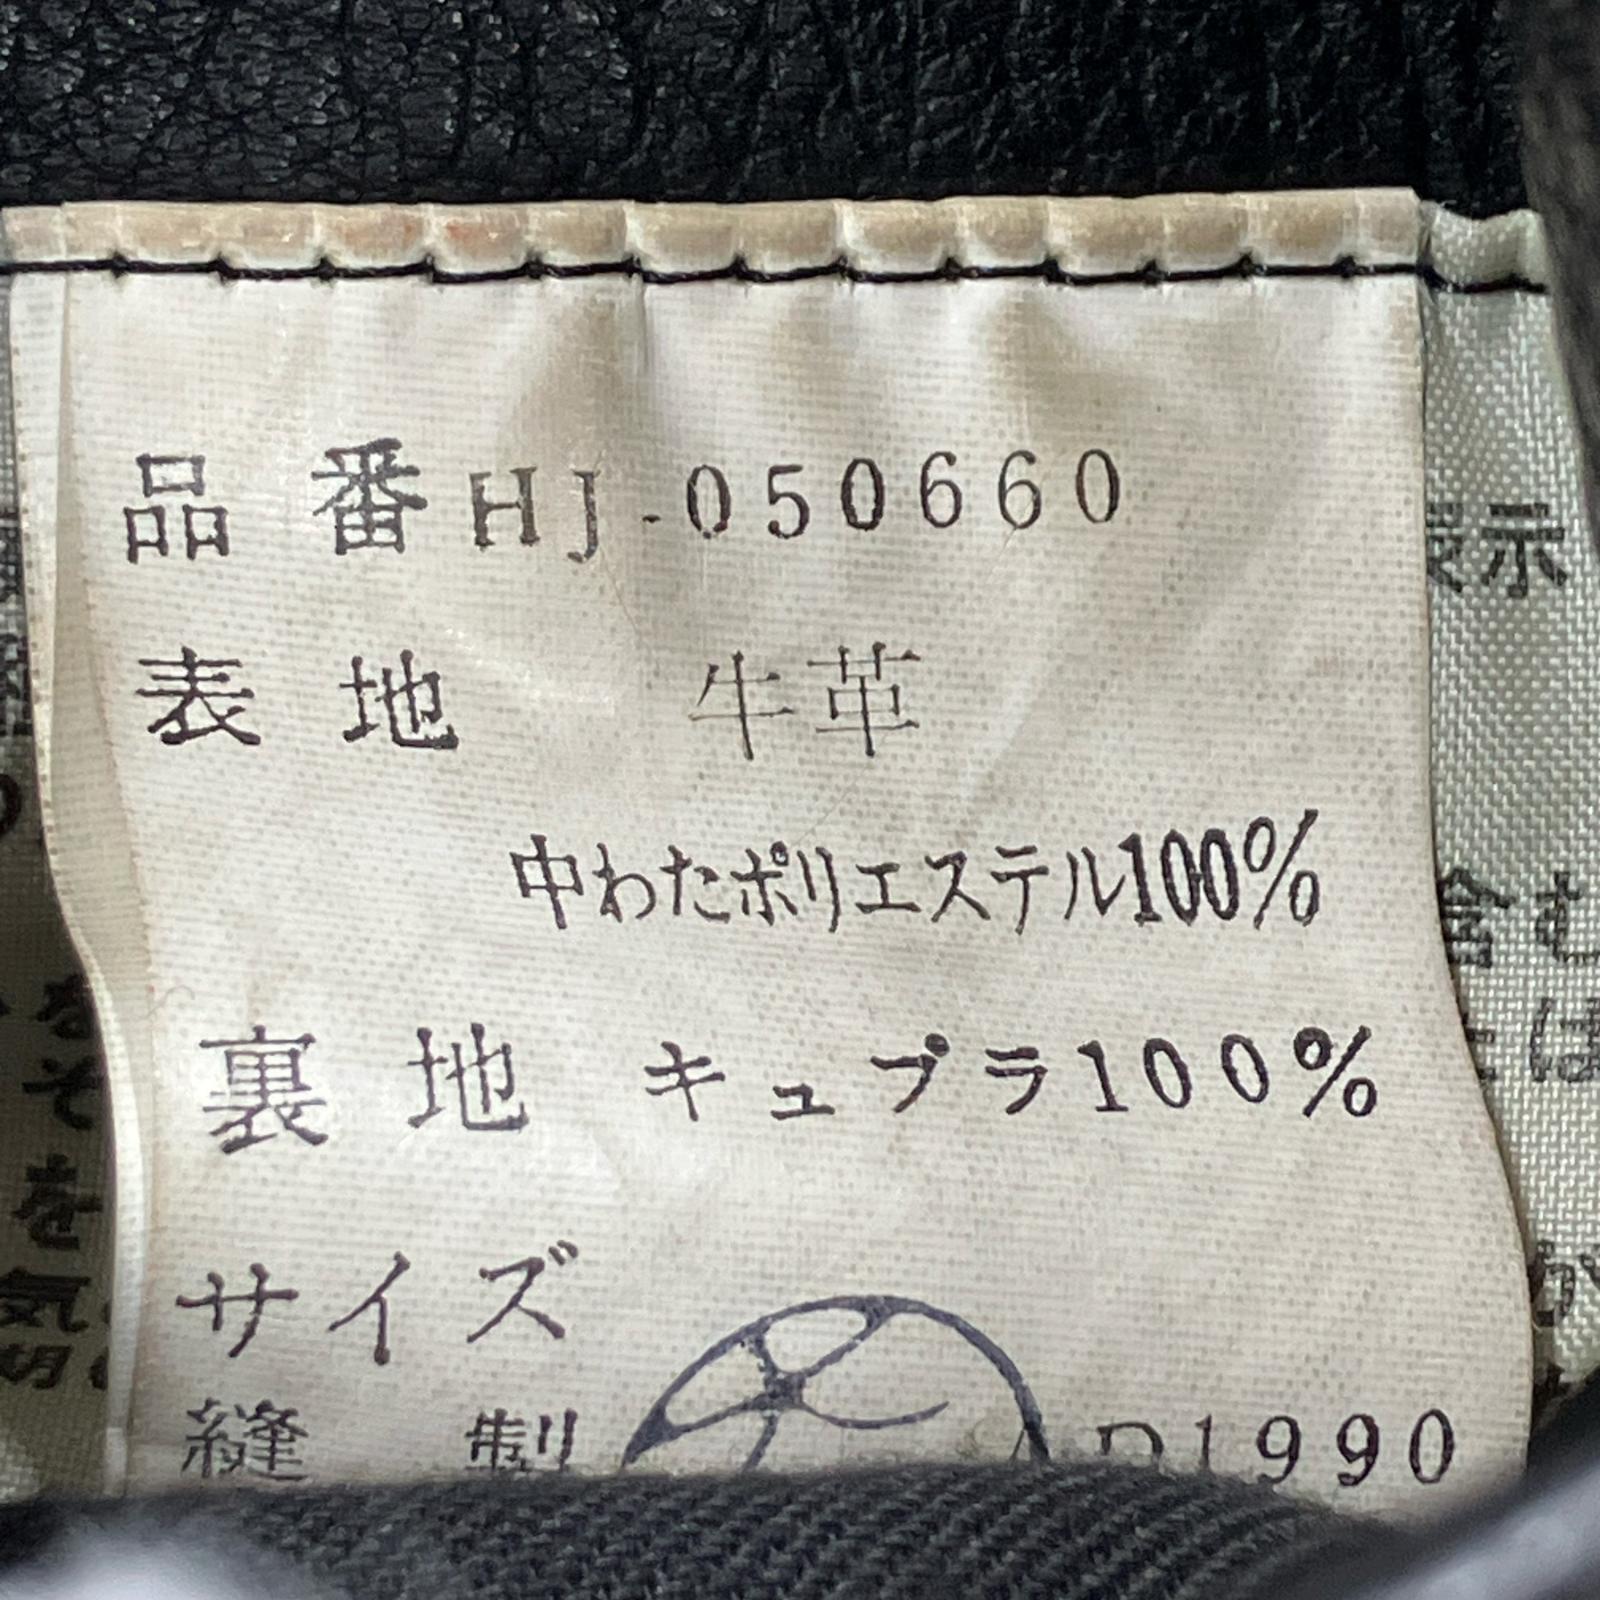 品番 HJ-050660
表地 牛革
中わたポリエステル100%
裏地 キュプラ100%
サイズ
縫製 AD1990
表示
含む
は
な
そ
を
気
切